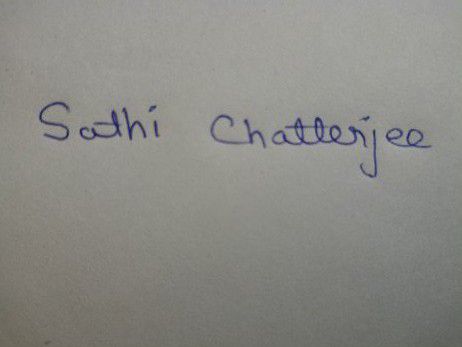 Sathi Chatterjee